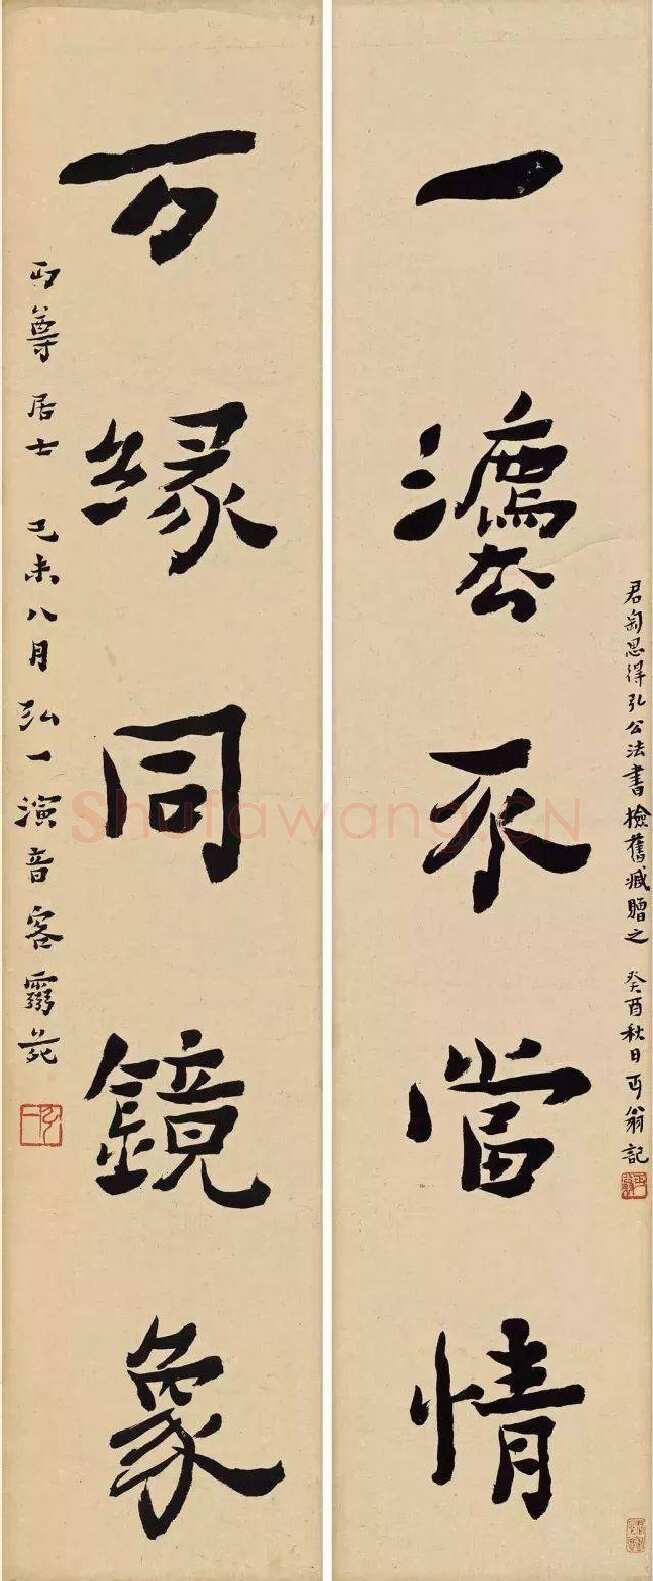 一灋不當情
君匋思得弘公法書檢舊臧贈之 癸酉秋日丏翁記
万緣同鏡象
丏尊居士 己未八月弘一演音客靈苑
弘一
Shufawang.CN